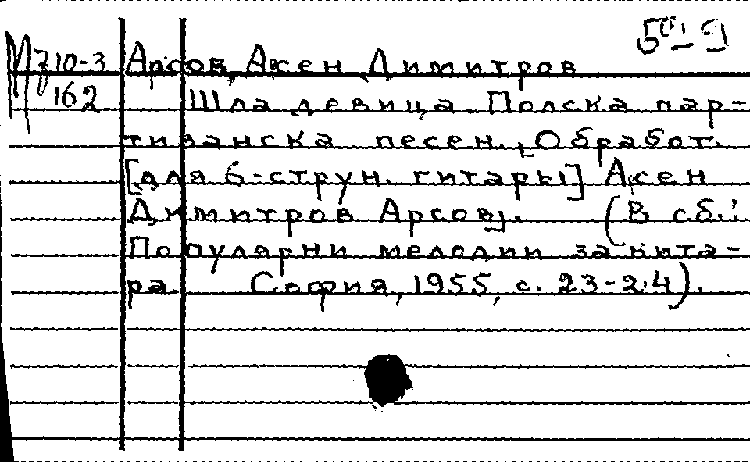 5⁰-9
М з10-3 Арсов, Асен Димитров
162 Шла девица. Полска пар-
тизанска песен. Обработ.
[для 6-струн. гитары] Асен
Димитров Арсов. (В сб.:
Популярни мелодии за кита-
ра. София, 1955, с. 23-24).